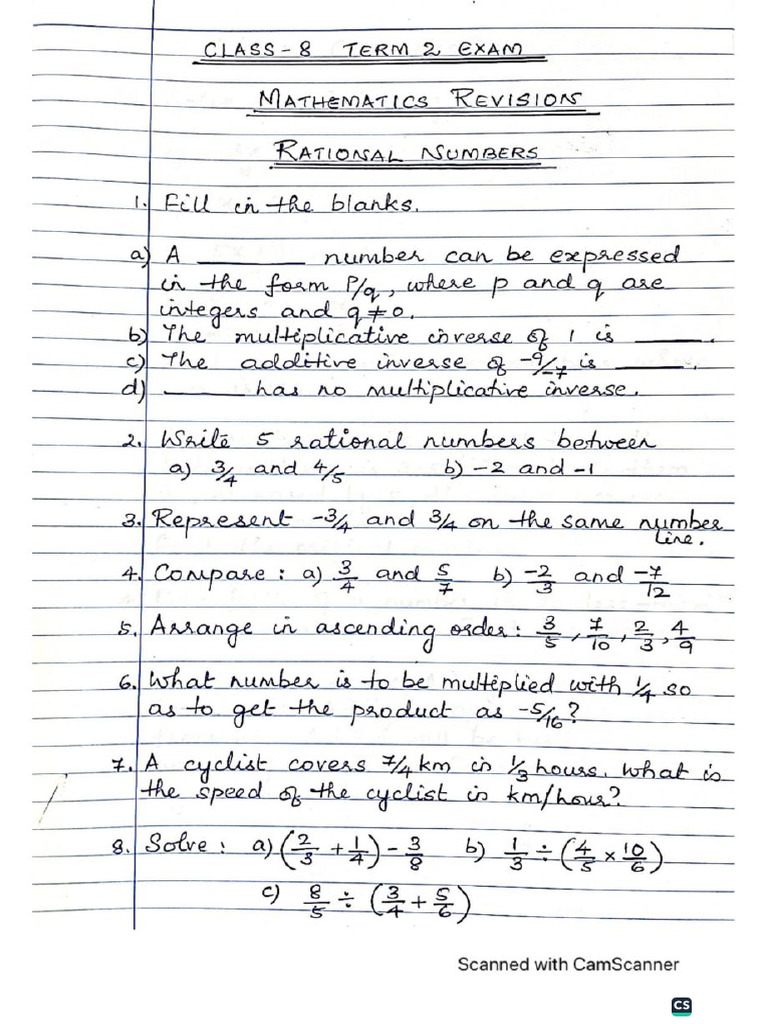 CLASS-8 TERM 2 EXAM
MATHEMATICS REVISION
RATIONAL NUMBERS
1. Fill in the blanks.
a) A ________ number can be expressed
in the form P/q, where p and q are
integers and q≠0.
b) The multiplicative inverse of 1 is ______.
c) The additive inverse of -9/-7 is ______.
d) ______ has no multiplicative inverse.
2. Write 5 rational numbers between
a) 3/4 and 4/5 b) -2 and -1
3. Represent -3/4 and 3/4 on the same number
line.
4. Compare: a) 3/4 and 5/7 b) -2/3 and -7/12
5. Arrange in ascending order: 3/5, 7/10, 2/3, 4/9
6. What number is to be multiplied with 1/4 so
as to get the product as -5/16?
7. A cyclist covers 7/4 km in 1/3 hours. What is
the speed of the cyclist in km/hour?
8. Solve: a) (2/3 + 1/4) - 3/8 b) 1/3 ÷ (4/5 × 10/6)
c) 8/5 ÷ (3/4 + 5/6)
Scanned with CamScanner
CS